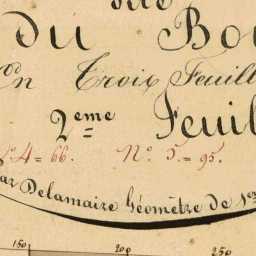 dite
du Bo
on Trois Feuill
2eme Feuil
No. 4 = 66. No. 5 = 95.
par Delamaire Géomètre de 1er
150 200 250